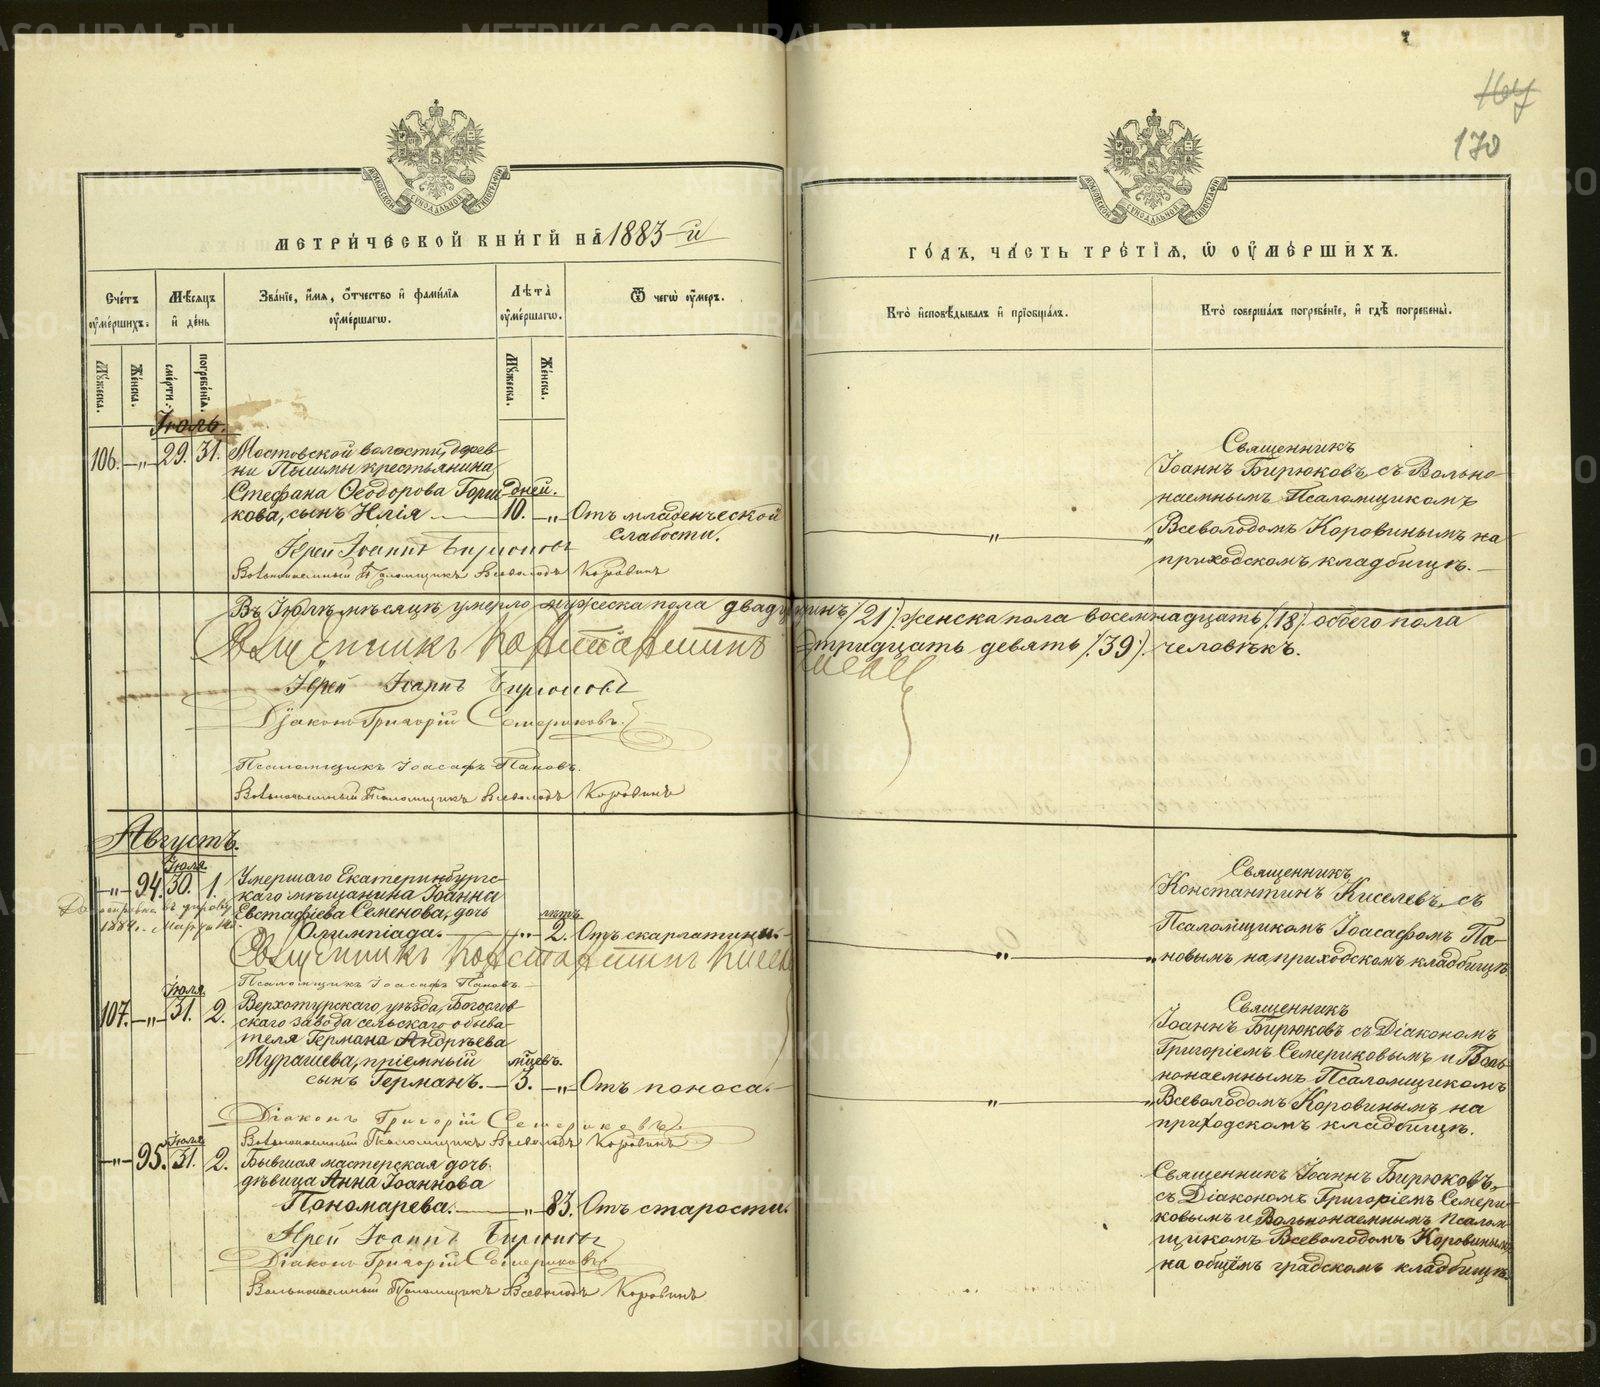 167
170
МОСКОВСКОЙ СѴНОДАЛЬНОЙ ТИПОГРАФІИ
МОСКОВСКОЙ СѴНОДАЛЬНОЙ ТИПОГРАФІИ
МЕТРИЧЕСКОЙ КНИГИ НА 1883-й
ГОДЪ, ЧАСТЬ ТРЕТІЯ, Ѡ ОУМЕРШИХЪ.
Счетъ оумершихъ.
Мѣсяцъ и день
Званіе, имя, отчество и фамилія оумершагѡ.
Лѣта оумершагѡ.
Ѿ чегѡ оумеръ.
Кто исповѣдывалъ и пріобщалъ.
Кто совершалъ погребеніе, и гдѣ погребены.
Мужеска.
Женска.
смерти.
погребенія.
Мужеска.
Женска.
Іюль.
106. — „ — 29. 31. Мостовской волости, дерев-
ни Пышмы крестьянина
Стефана Ѳеодорова Горш- дней.
кова, сынъ Илія — 10. — „ — Отъ младенческой
слабости.
Іерей Іоаннъ Бирюковъ
Вольнонаемный Псаломщикъ Всеволодъ Коровинъ
Священникъ
Іоаннъ Бирюковъ, съ Вольно-
наемнымъ Псаломщикомъ
„ Всеволодомъ Коровинымъ на
приходскомъ кладбищѣ. —
Въ Іюлѣ мѣсяцѣ умерло мужеска пола двадц. одинъ /21/. женска пола восемнадцать /.18/. обоего пола
тридцать девять /.39/. человѣкъ.
Священникъ Константинъ Киселевъ
Іерей Іоаннъ Бирюковъ
Діаконъ Григорій Семериковъ.
Псаломщикъ Іоасафъ Пановъ.
Вольнонаемный Псаломщикъ Всеволодъ Коровинъ
Августъ.
Іюля
— „ — 94. 30. 1. Умершаго Екатеринбургс-
каго мѣщанина Іоанна
Евстафіева Семенова, дочь лѣтъ
Олимпіада. — „ — 2. Отъ скарлатины. —
1884. Марта
Священникъ Константинъ Киселевъ
Псаломщикъ Іоасафъ Пановъ. —
Священникъ
Константинъ Киселевъ, съ
Псаломщикомъ Іоасафомъ Па-
„ новымъ на приходскомъ кладбищѣ
Іюля
107. — „ — 31. 2. Верхотурскаго уѣзда, Богослов-
скаго завода сельскаго обыва-
теля Германа Андрѣева
Мурашева, пріемный мѣцевъ.
сынъ Германъ. — 3. — „ — Отъ поноса. —
Діаконъ Григорій Семериковъ
Вольнонаемный Псаломщикъ Всеволодъ Коровинъ
Священникъ
Іоаннъ Бирюковъ съ Діакономъ
Григоріемъ Семериковымъ и Воль-
нонаемнымъ Псаломщикомъ
„ Всеволодомъ Коровинымъ на
приходскомъ кладбищѣ.
Іюля
— „ — 95. 31. 2. Бывшая мастерская дочь
дѣвица Анна Іоаннова
Пономарева. — „ — 83. Отъ старости.
Іерей Іоаннъ Бирюковъ
Діаконъ Григорій Семериковъ
Вольнонаемный Псаломщикъ Всеволодъ Коровинъ
Священникъ Іоаннъ Бирюковъ,
съ Діакономъ Григоріемъ Семери-
ковымъ и Вольнонаемнымъ Псалом-
щикомъ Всеволодомъ Коровинымъ
на общемъ градскомъ кладбищѣ.
METRIKI.GASO-URAL.RU